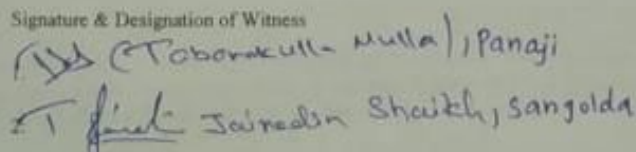 Signature & Designation of Witness
(Toborakulla Mulla), Panaji
Jainedin Shaikh, Sangolda